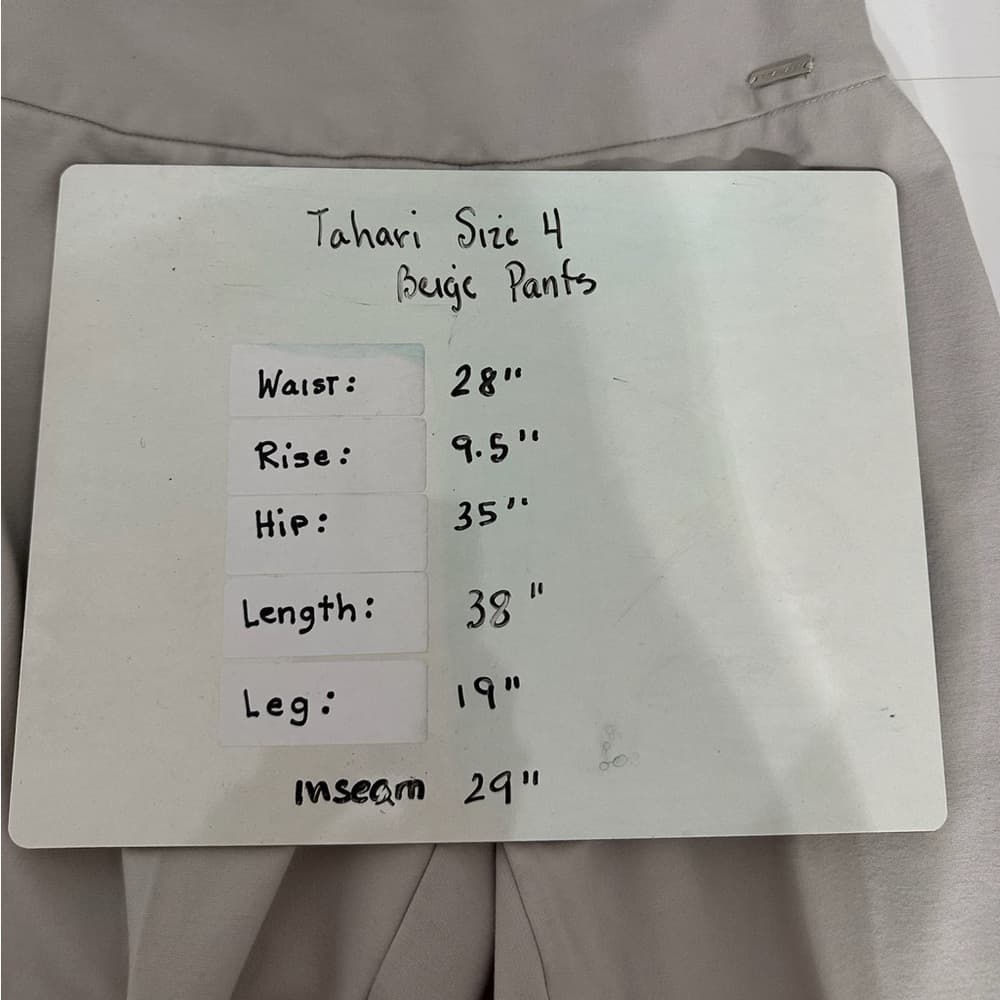 Tahari Size 4
Beige Pants
Waist: 28"
Rise: 9.5"
Hip: 35"
Length: 38"
Leg: 19"
inseam 29"